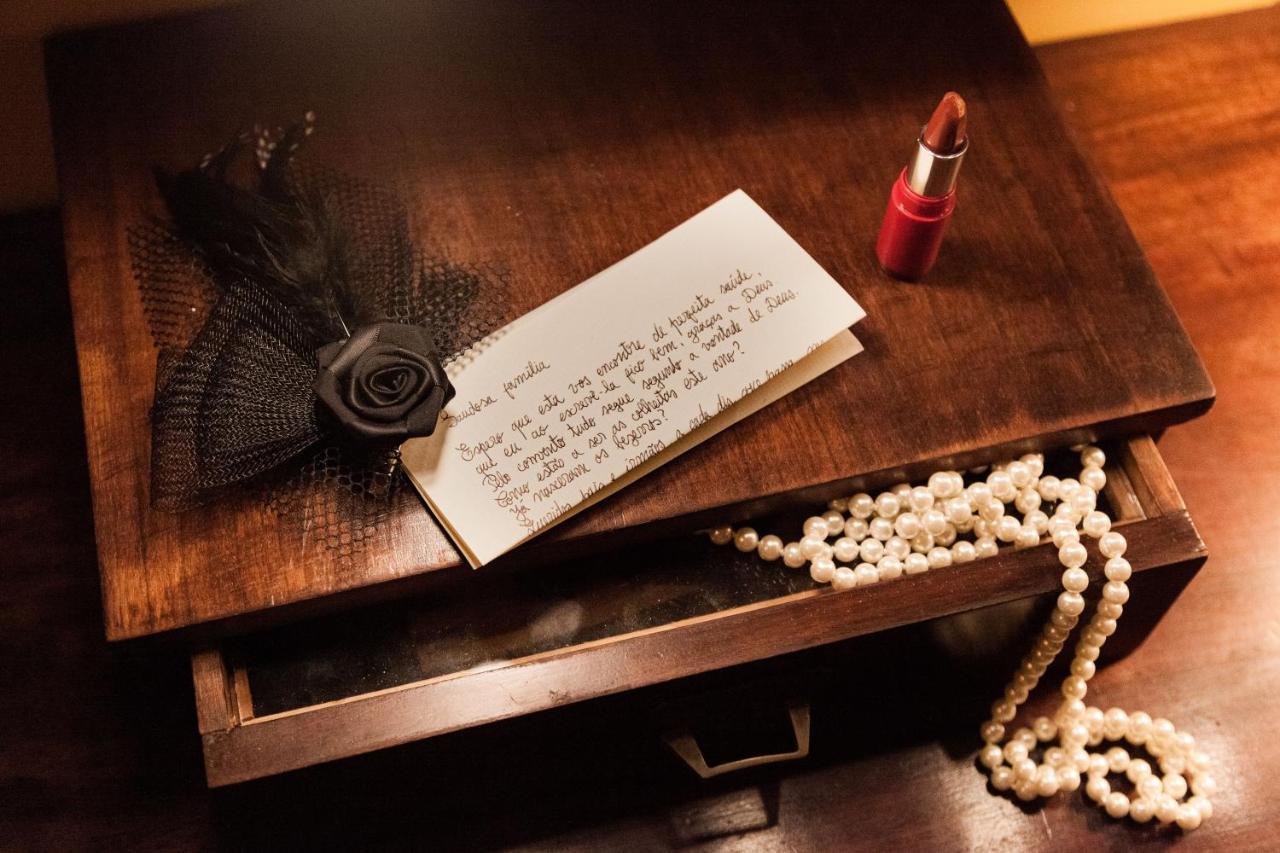 Saudosa família
Espero que esta vos encontre de perfeita saúde,
que eu ao escrevê-la fico bem, graças a Deus
Pelo convento tudo segue segundo a vontade de Deus.
Como estão a ser as colheitas este ano?
Já nasceram os bezerros?
Queridos pais e irmãos a cada dia que passa